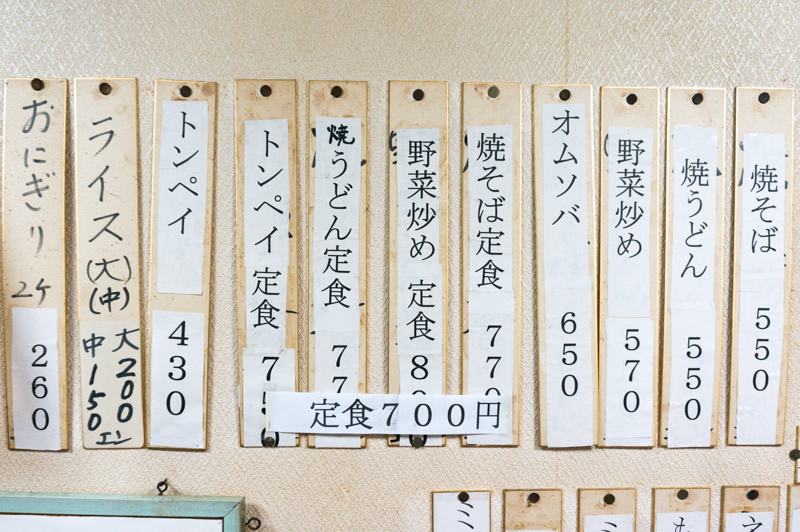 焼そば 550
焼うどん 550
野菜炒め 570
オムソバ 650
焼そば定食 770
野菜炒め 定食 8
焼うどん定食 77
トンペイ定食 750
定食700円
トンペイ 430
ライス(大)(中) 大200 中150エン
おにぎり 2ケ 260